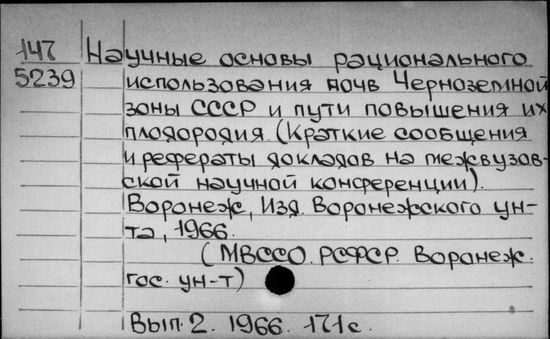 147 Научные основы рационального
5239 использования почв Черноземной
зоны СССР и пути повышения их
плодородия. (Краткие сообщения
и рефераты докладов на межвузов-
ской научной конференции).
Воронеж, Изд. Воронежского ун-
та, 1966.
(МВССО. РСФСР. Воронеж.
гос. ун-т)
Вып. 2. 1966. 171 с.